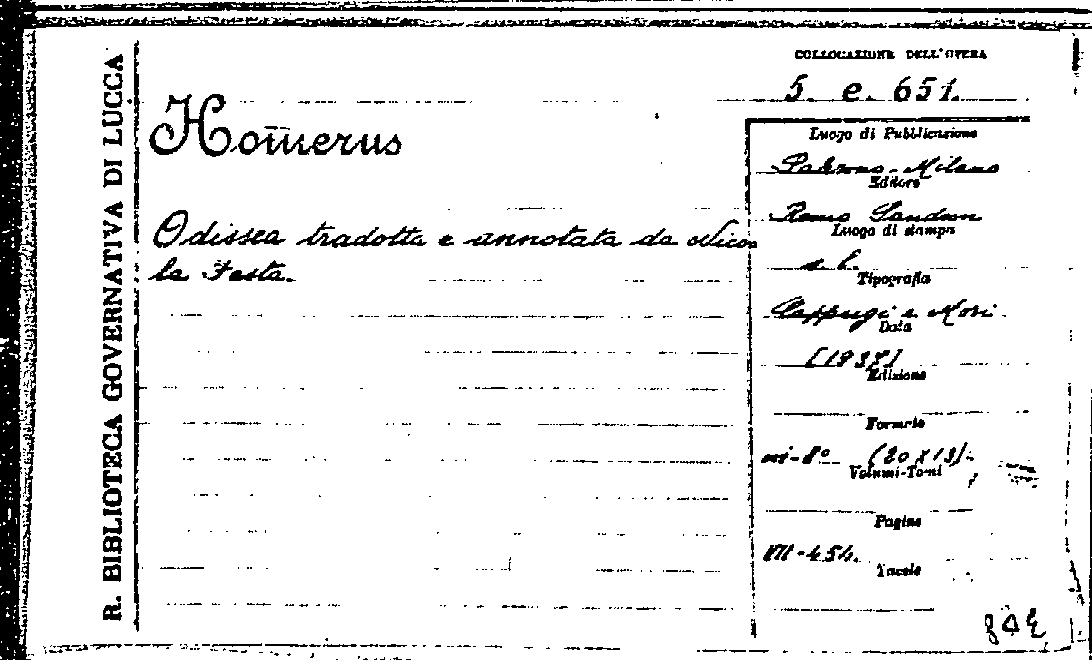 R. BIBLIOTECA GOVERNATIVA DI LUCCA
COLLOCAZIONE DELL'OPERA
5. e. 651.
Homerus
Odissea tradotta e annotata da Nico-
la Festa.
Luogo di Pubblicazione
Palermo-Milano
Editore
Remo Sandron
Luogo di stampa
s. l.
Tipografia
Cappugi e Mori
Data
[1938]
Edizione
Formato
in-8° (20x13).
Volumi-Tomi
Pagine
VII-454.
Tavole